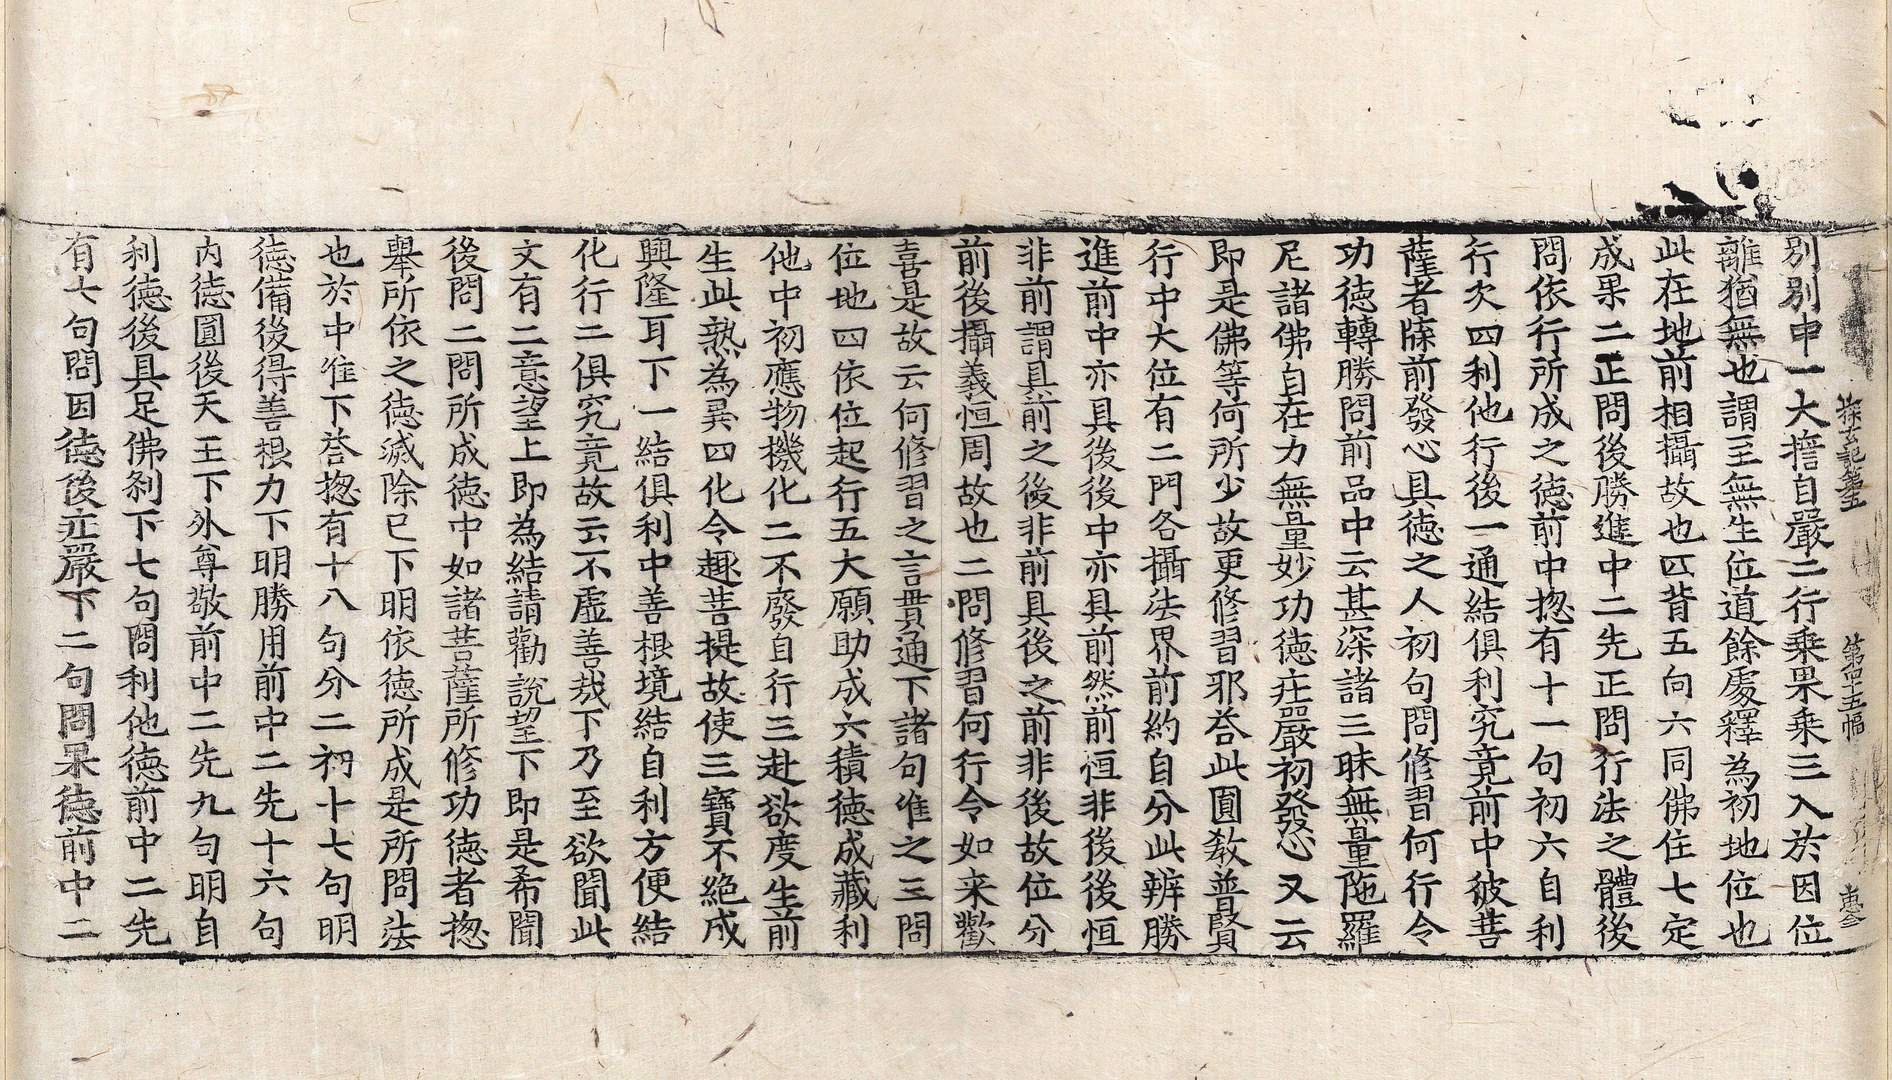 別別中一大擔自嚴二行乗果乗三入於因位
離猶無也謂至無生位道餘處釋為初地位也
此在地前相攝故也四背五向六同佛住七定
成果二正問後勝進中二先正問行法之體後
問依行所成之德前中揔有十一句初六自利
行次四利他行後一通結俱利究竟前中彼菩
薩者牒前發心具德之人初句問修習何行令
功德轉勝問前品中云甚深諸三昧無量陁羅
尼諸佛自在力無量妙功德㽵嚴初發心又云
即是佛等何所少故更修習邪荅此圓教普賢
行中大位有二門各攝法界前約自分此辨勝
進前中亦具後後中亦具前然前恒非後後恒
非前謂具前之後非前具後之前非後故位分
前後攝義恒周故也二問修習何行令如来歡
喜是故云何修習之言貫通下諸句唯之三問
位地四依位起行五大願助成六積德成藏利
他中初應物機化二不廢自行三赴欲度生前
生此熟為異四化令趣菩提故使三寶不絶成
興隆耳下一結俱利中善根境結自利方便結
化行二俱究竟故云不虛善哉下乃至欲聞此
文有二意望上即為結請勸說望下即是希聞
後問二問所成德中如諸菩薩所修功德者揔
舉所依之德滅除已下明依德所成是所問法
也於中唯下荅揔有十八句分二初十七句明
德備後得善根力下明勝用前中二先十六句
內德圓後天王下外尊敬前中二先九句明自
利德後具足佛剎下七句問利他德前中二先
有七句問因德後㽵嚴下二句問果德前中二
探玄記第五 第四十五幅